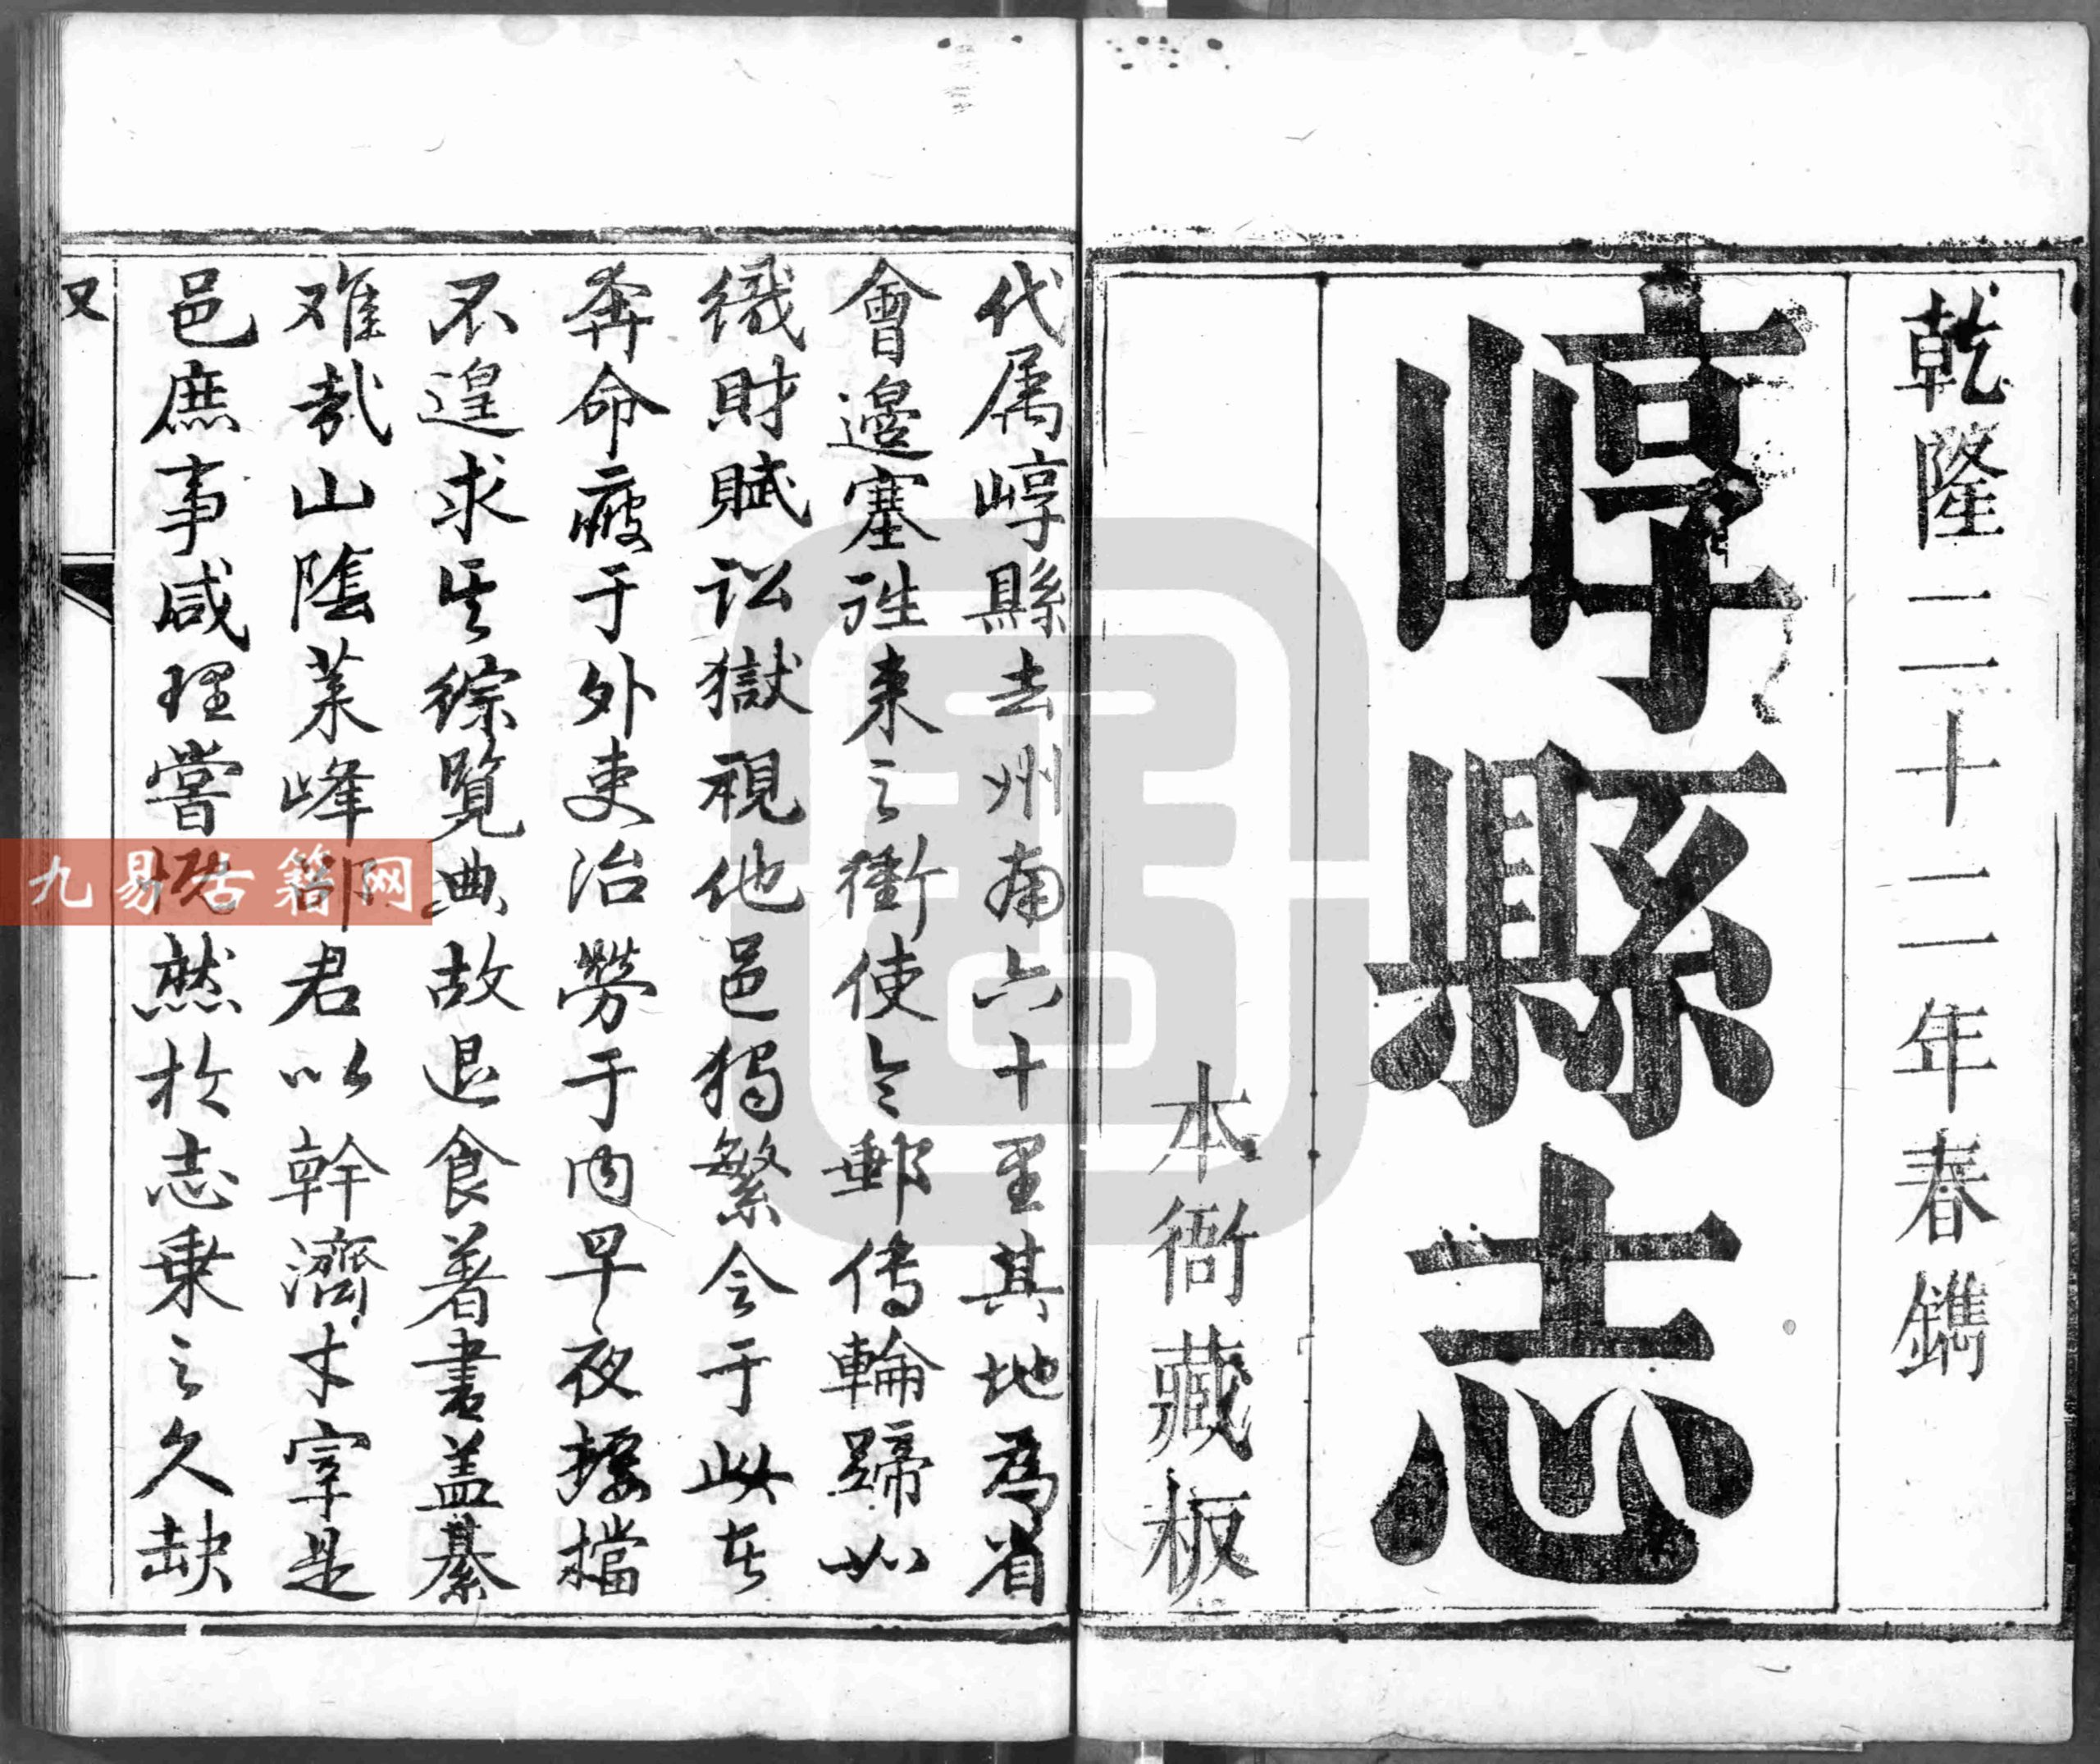 乾隆二十二年春鐫
崞縣志
本衙藏板
代属崞縣去州南六十里其地為省
會邊塞往来之衝使令郵傳輪蹄如
織財賦訟獄視他邑獨繁令于此者
奔命疲于外吏治勞于内早夜擾擋
不遑求其綜覽典故退食著書盖綦
难哉山陰菜峰邵君以幹濟才宰是
邑庶事咸理嘗慨然於志乗之久缺
又
一
九易古籍网